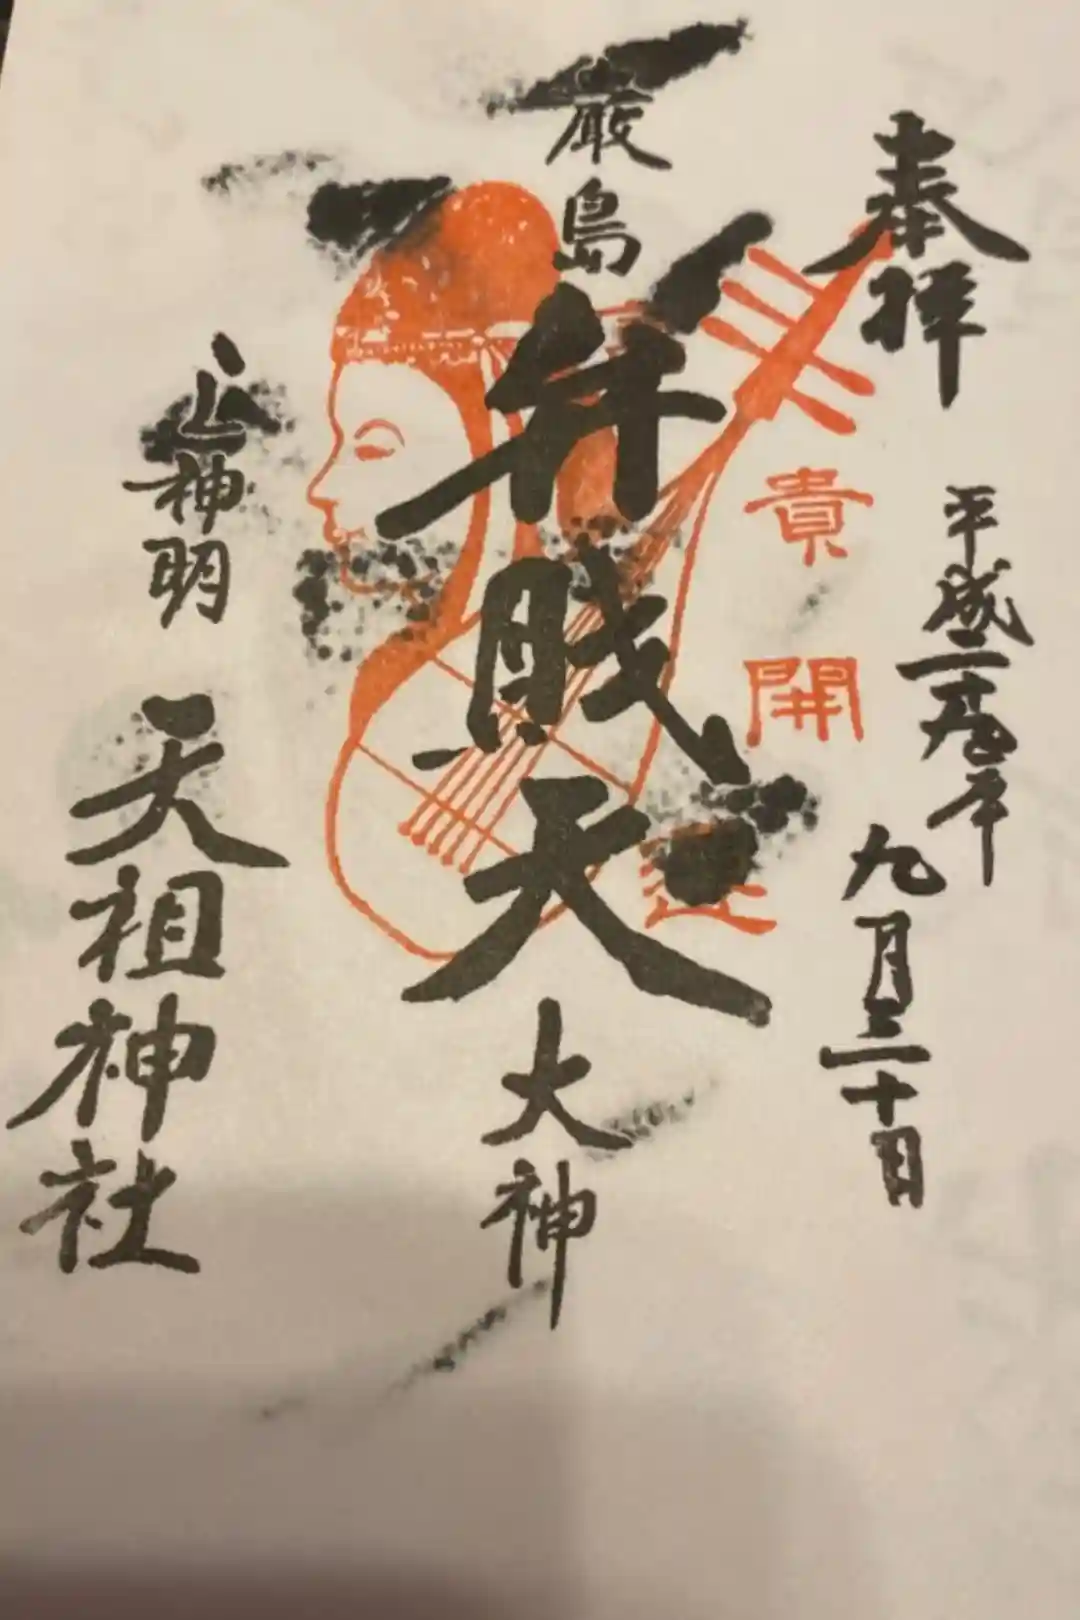 奉拝
平成二十九年
九月三十日
貴開
厳島
弁財天
大神
上神明
天祖神社